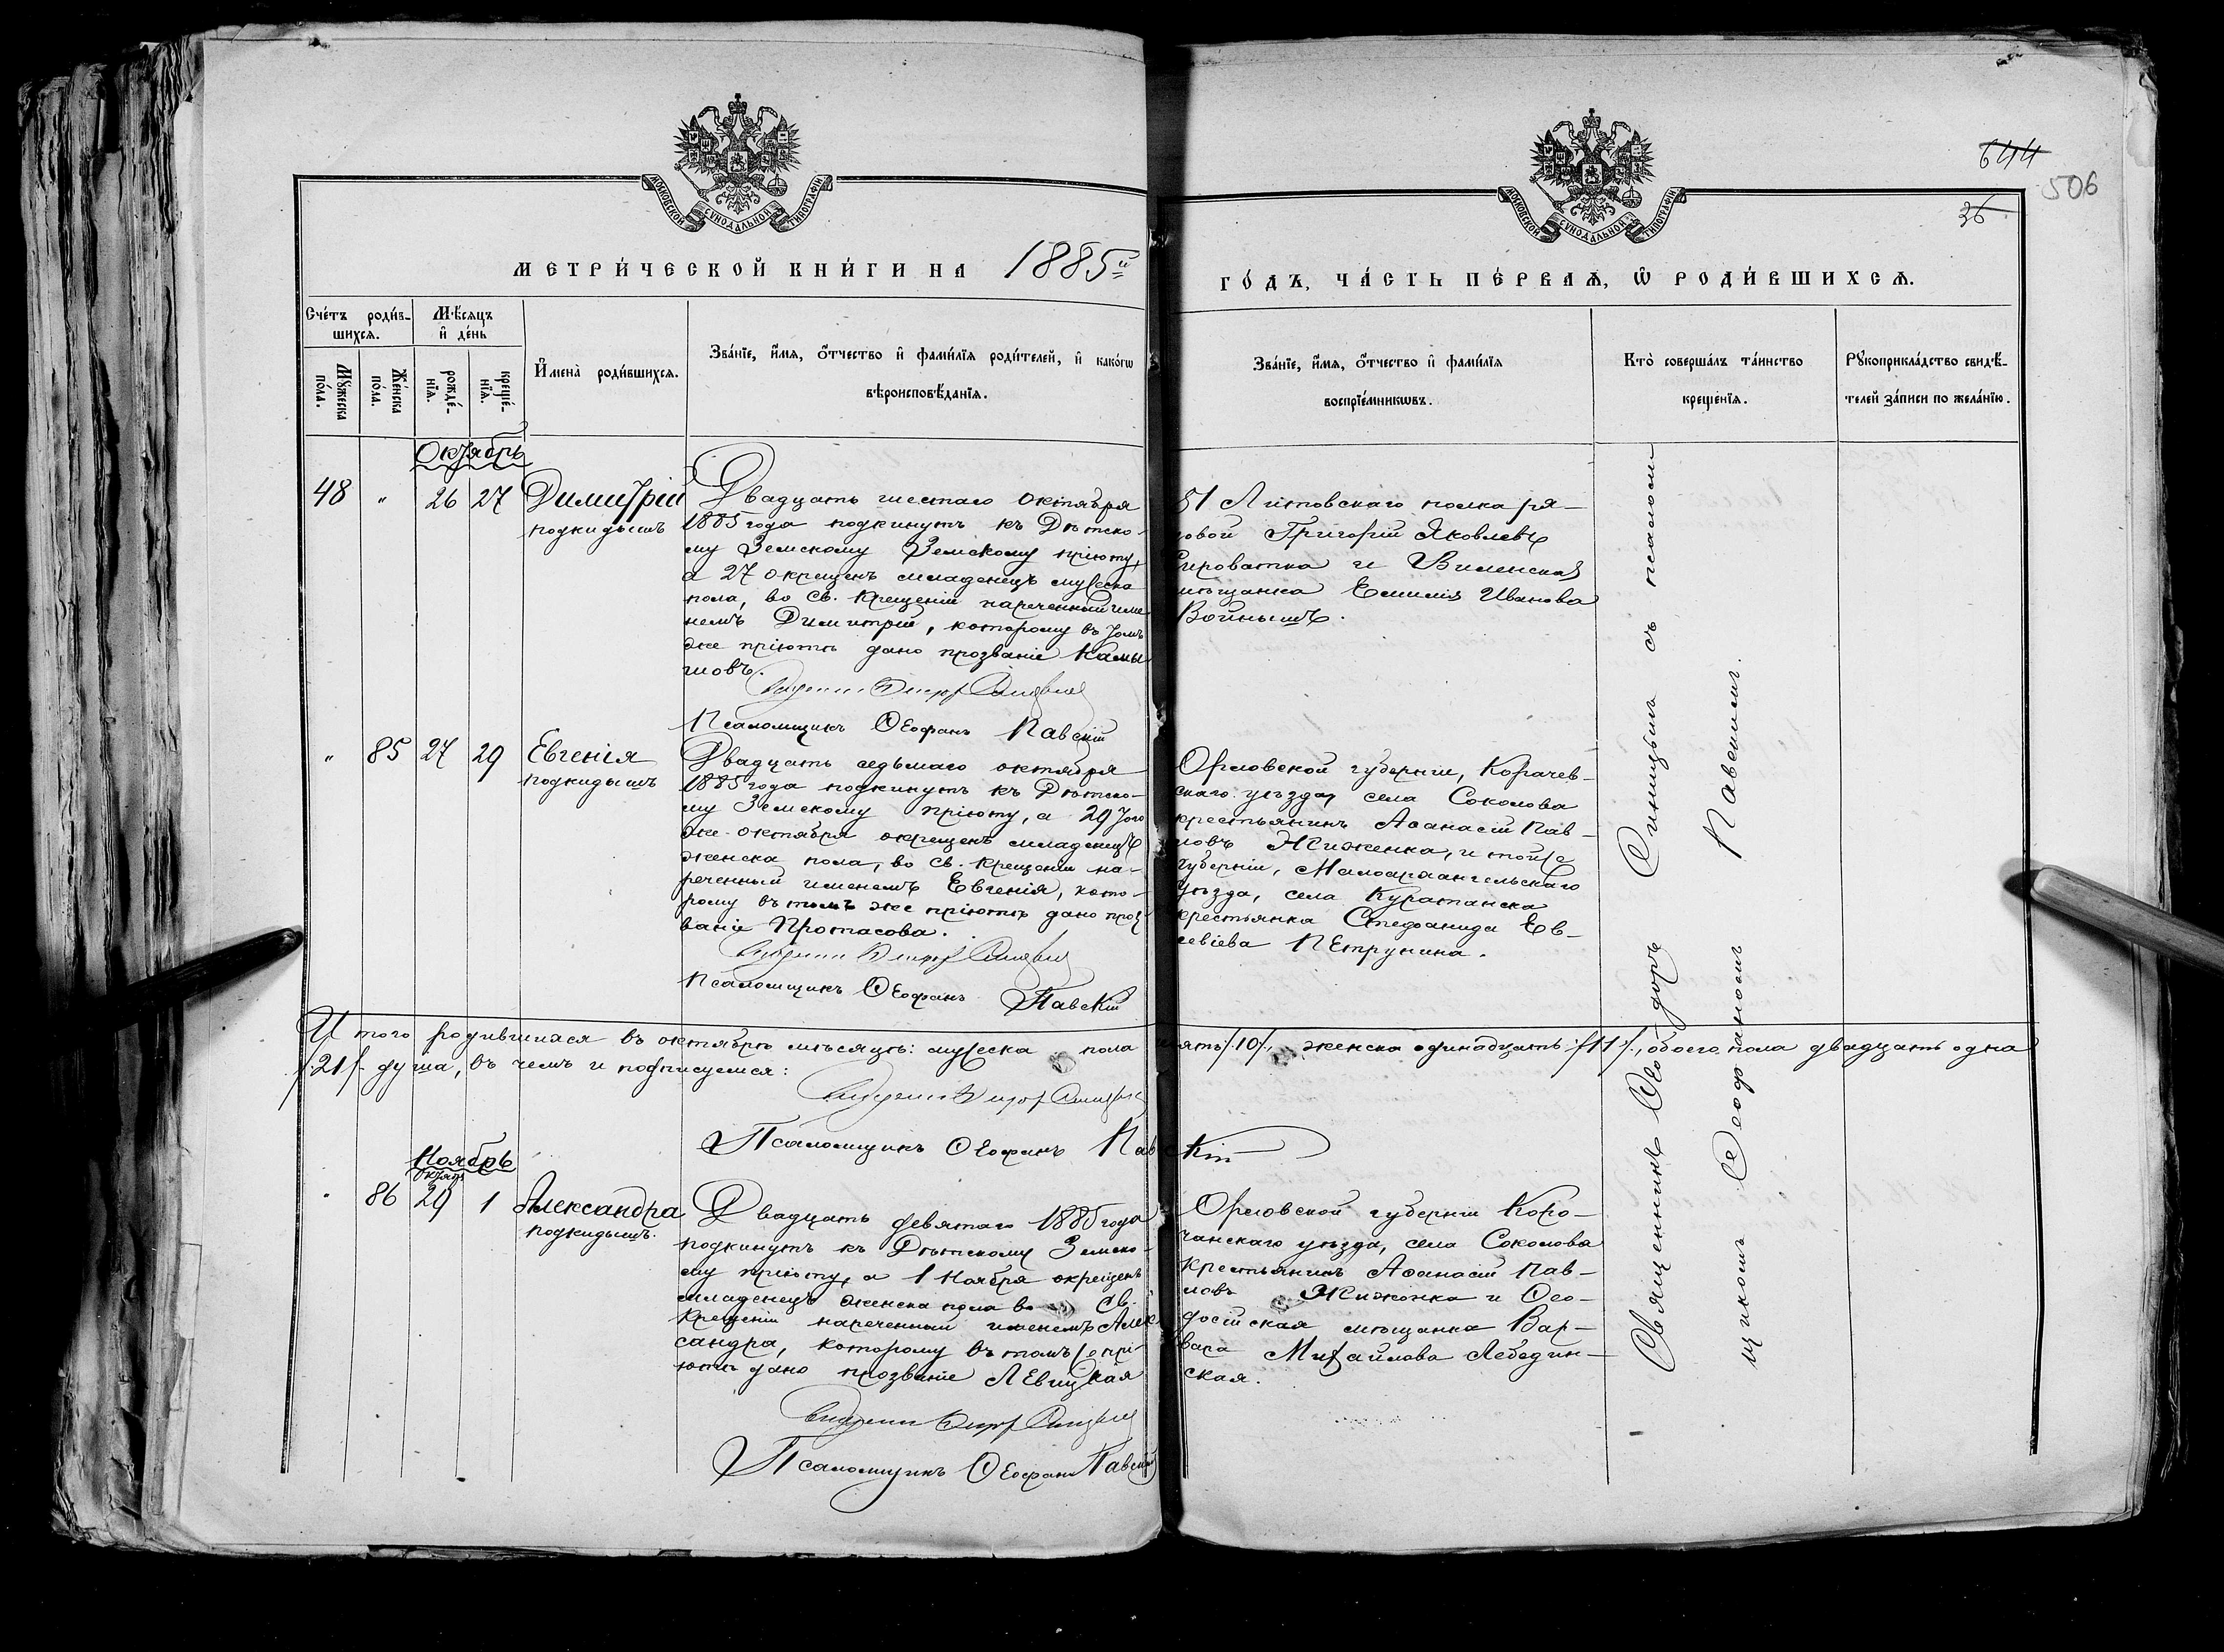 644
506
36
МОСКОВСКОЙ СѴНОДАЛЬНОЙ ТИПОГРАФІИ
МОСКОВСКОЙ СѴНОДАЛЬНОЙ ТИПОГРАФІИ
МЕТРИ́ЧЕСКОЙ КНИ́ГИ НА 1885й
ГО́ДЪ, ЧА́СТЬ ПЕ́РВАЯ, Ѡ РОДИ́ВШИХСЯ.
Сче́тъ роди́в-
шихся.
Мѣ́сяцъ
и де́нь
Мꙋ́жеска
по́ла.
Же́нска
по́ла.
рожде́-
нїя.
креще́-
нїя.
И҆мена̀ роди́вшихся.
Зва́нїе, и҆́мя, ѻ҆́тчество и҆ фами́лїя роди́телей, и҆ како́гѡ
вѣроисповѣ́данїя.
Зва́нїе, и҆́мя, ѻ҆́тчество и҆ фами́лїя
воспрїе́мникѡвъ.
Кто̀ соверша́лъ та́инство
креще́нїя.
Рꙋкоприкла́дство свидѣ́-
телей за́писи по жела́нїю.
Октябрь
48 " 26 27 Димитрій
подкидышъ
Двадцать шестаго октября
1885 года подкинутъ къ Дѣтско-
му Земскому Земскому пріюту,
а 27 окрещенъ младенецъ мужеска
пола, во св. крещеніи нареченный име
немъ Димитрій, которому въ томъ
же пріютѣ дано прозваніе Камы
шовъ.
Псаломщикъ Ѳеофанъ Павскій
51 Литовскаго полка ря-
довой Григорій Яковлевъ
Сироватка и Виленская
мѣщанка Емилія Иванова
Войнышъ.
" 85 27 29 Евгенія
подкидышъ
Двадцать седьмаго октября
1885 года подкинутъ къ Дѣтско-
му Земскому пріюту, а 29 того
же октября окрещенъ младенецъ
женска пола, во св. крещеніи на-
реченный именемъ Евгенія, кото-
рому въ томъ же пріютѣ дано проз
ваніе Протасова.
Псаломщикъ Ѳеофанъ Павскій
Орловской губерніи, Корачев-
скаго уѣзда, села Соколова
крестьянинъ Аѳанасій Пав-
ловъ Жиженка, и той же
губерніи, Малоархангельскаго
уѣзда, села Куратанска
крестьянка Стефанида Ев-
севіева Петрунина.
Итого родившихся въ октябрѣ мѣсяцѣ: мужеска пола
десять /:10:/, женска одинадцать /:11:/, обоего пола двадцать одна
/:21:/ душа, въ чемъ и подписуемся:
Псаломщикъ Ѳеофанъ Павскій
Ноябрь
Октяб
" 86 29 1 Александра
подкидышъ.
Двадцать девятаго 1885 года
подкинутъ къ Дѣтскому Земско-
му пріюту, а 1 Ноября окрещенъ
младенецъ женска пола во св.
крещеніи нареченный именемъ Алек
сандра, которому въ томъ же прі-
ютѣ дано прозваніе Левицкая
Псаломщикъ Ѳеофанъ Павскій
Орловской губерніи Коро-
чанскаго уѣзда, села Соколова
крестьянинъ Аѳанасій Пав-
ловъ Жижонка и Ѳео-
досійская мѣщанка Вар-
вара Михайлова Лебедин-
ская.
Священникъ Ѳеодоръ Синицынъ съ псалом-
щикомъ Ѳеофаномъ Павскимъ.